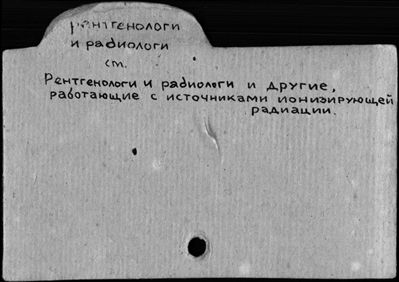 рентгенологи
и радиологи
см.
Рентгенологи и радиологи и другие,
работающие с источниками ионизирующей
радиации.